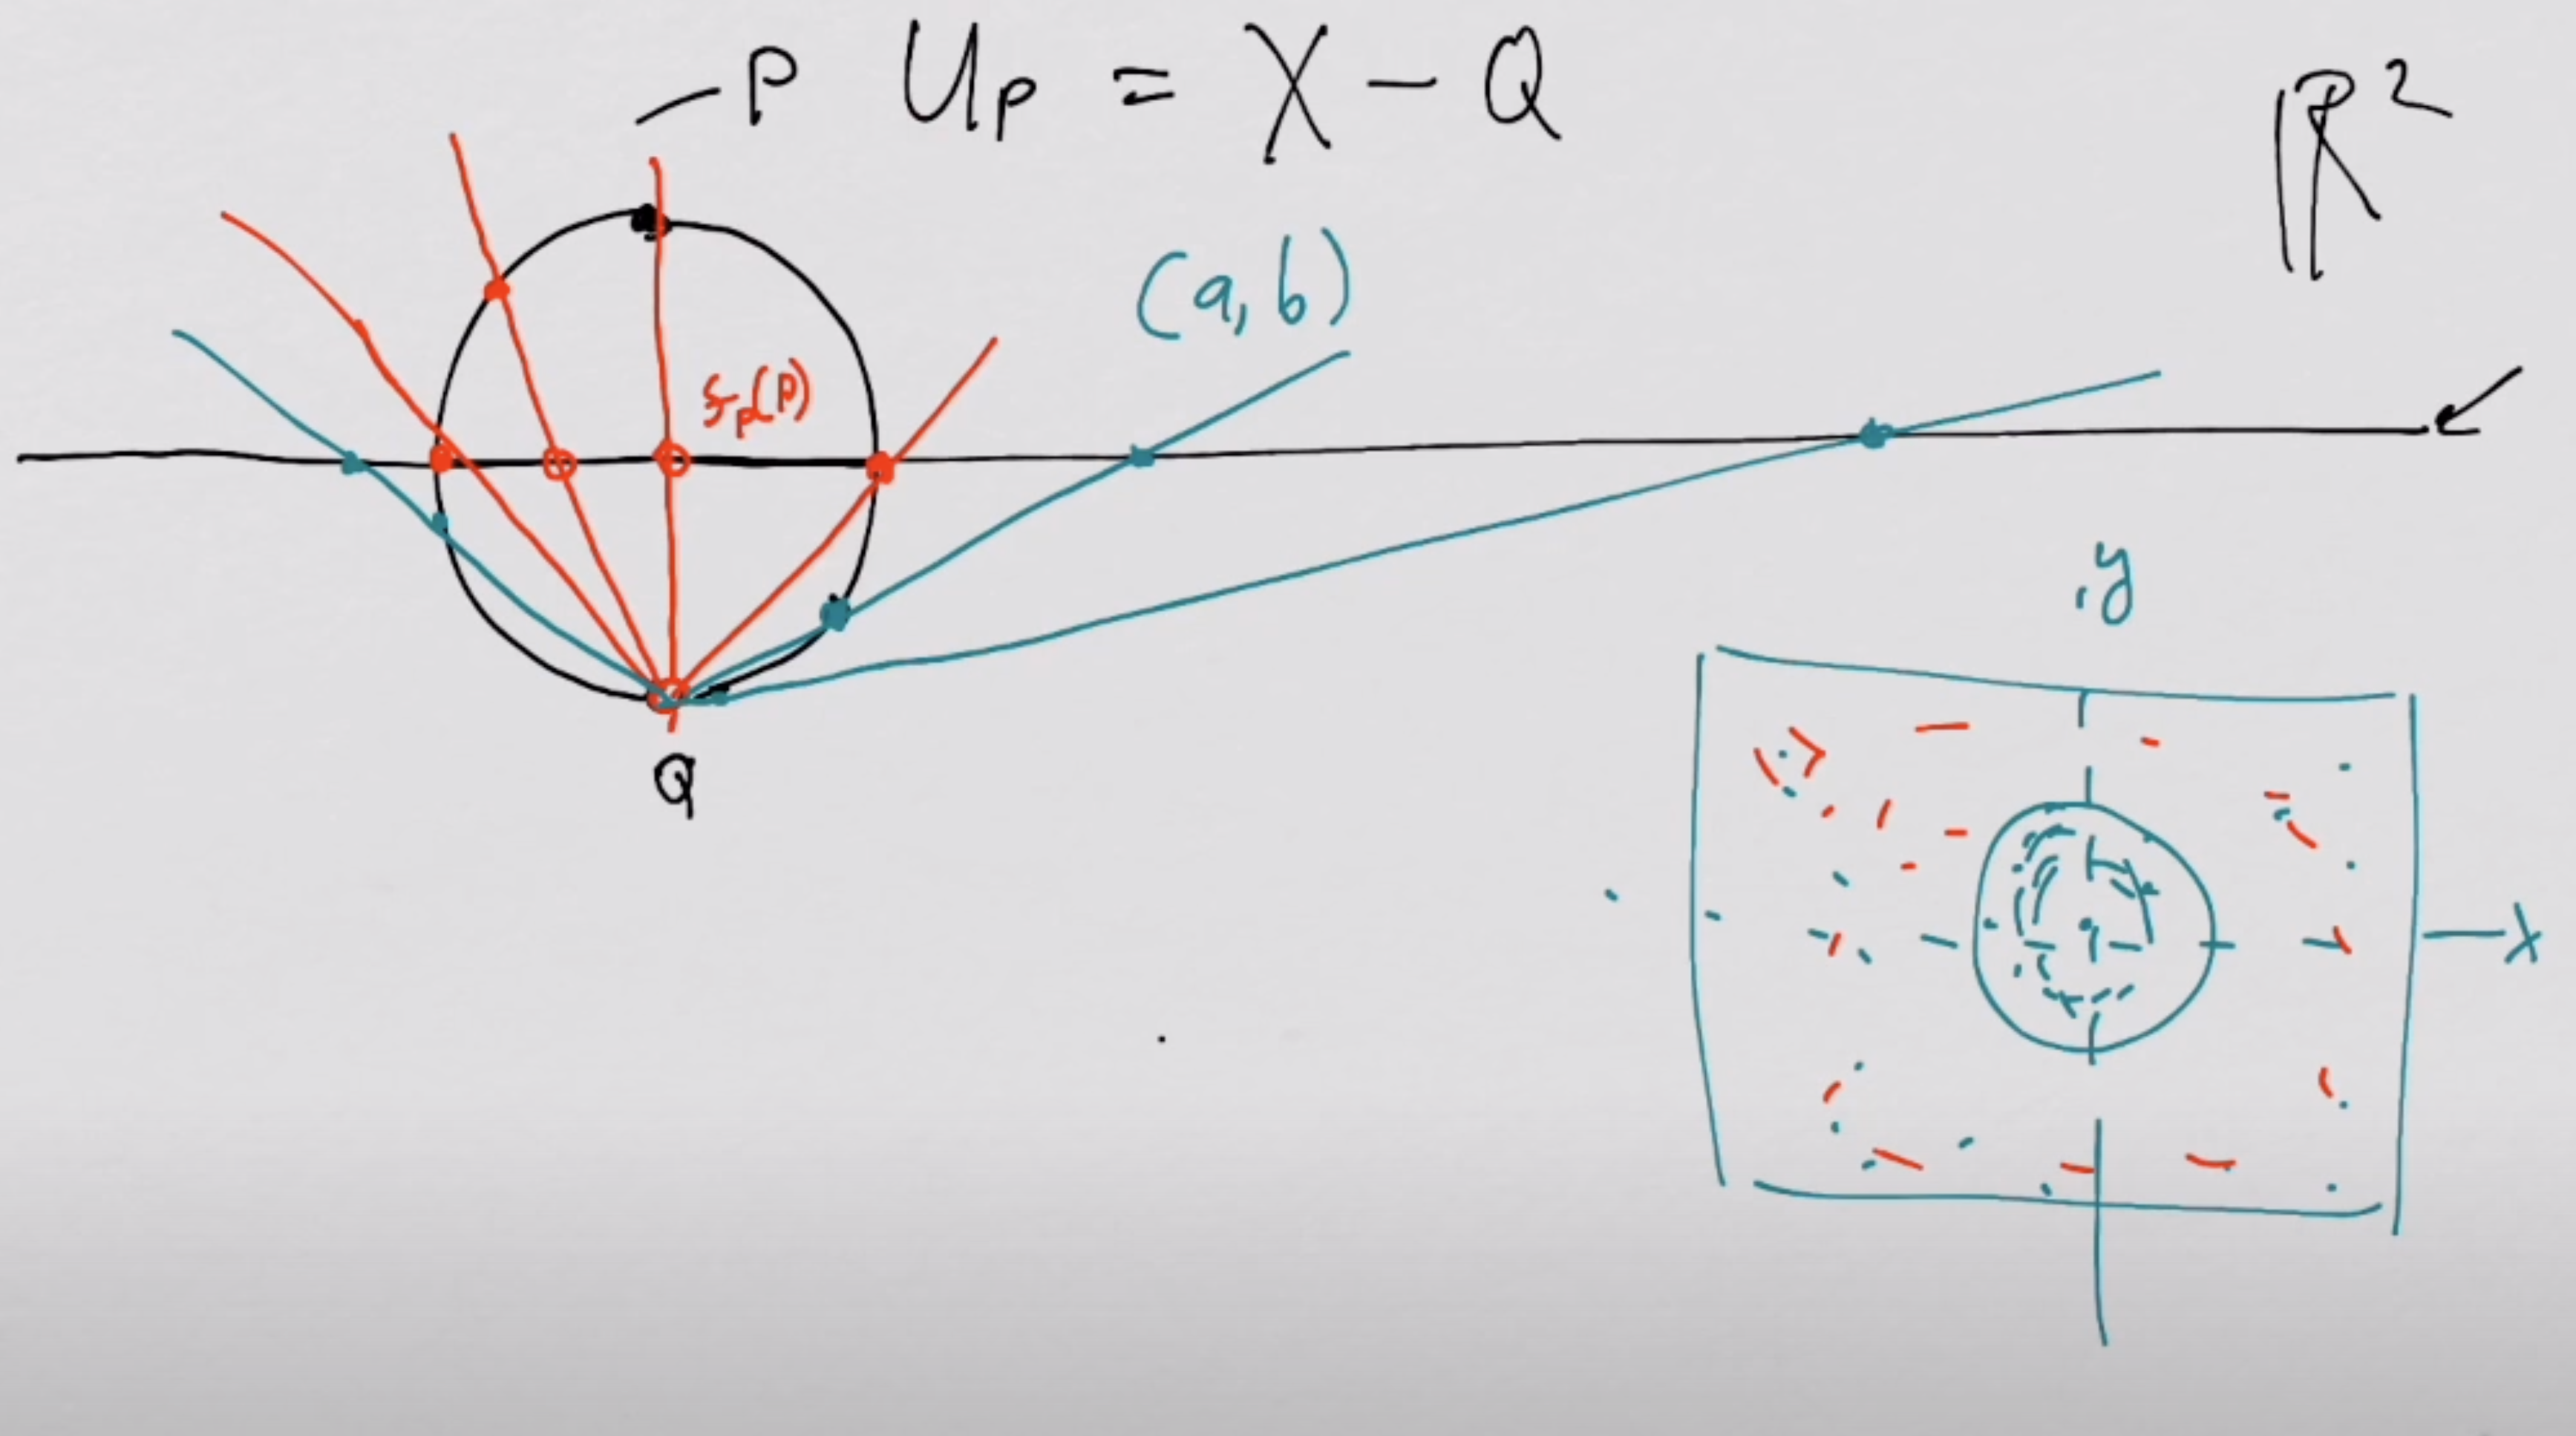 P U_P = X - Q
ℝ²
(a, b)
ξ_P(P)
Q
y
x